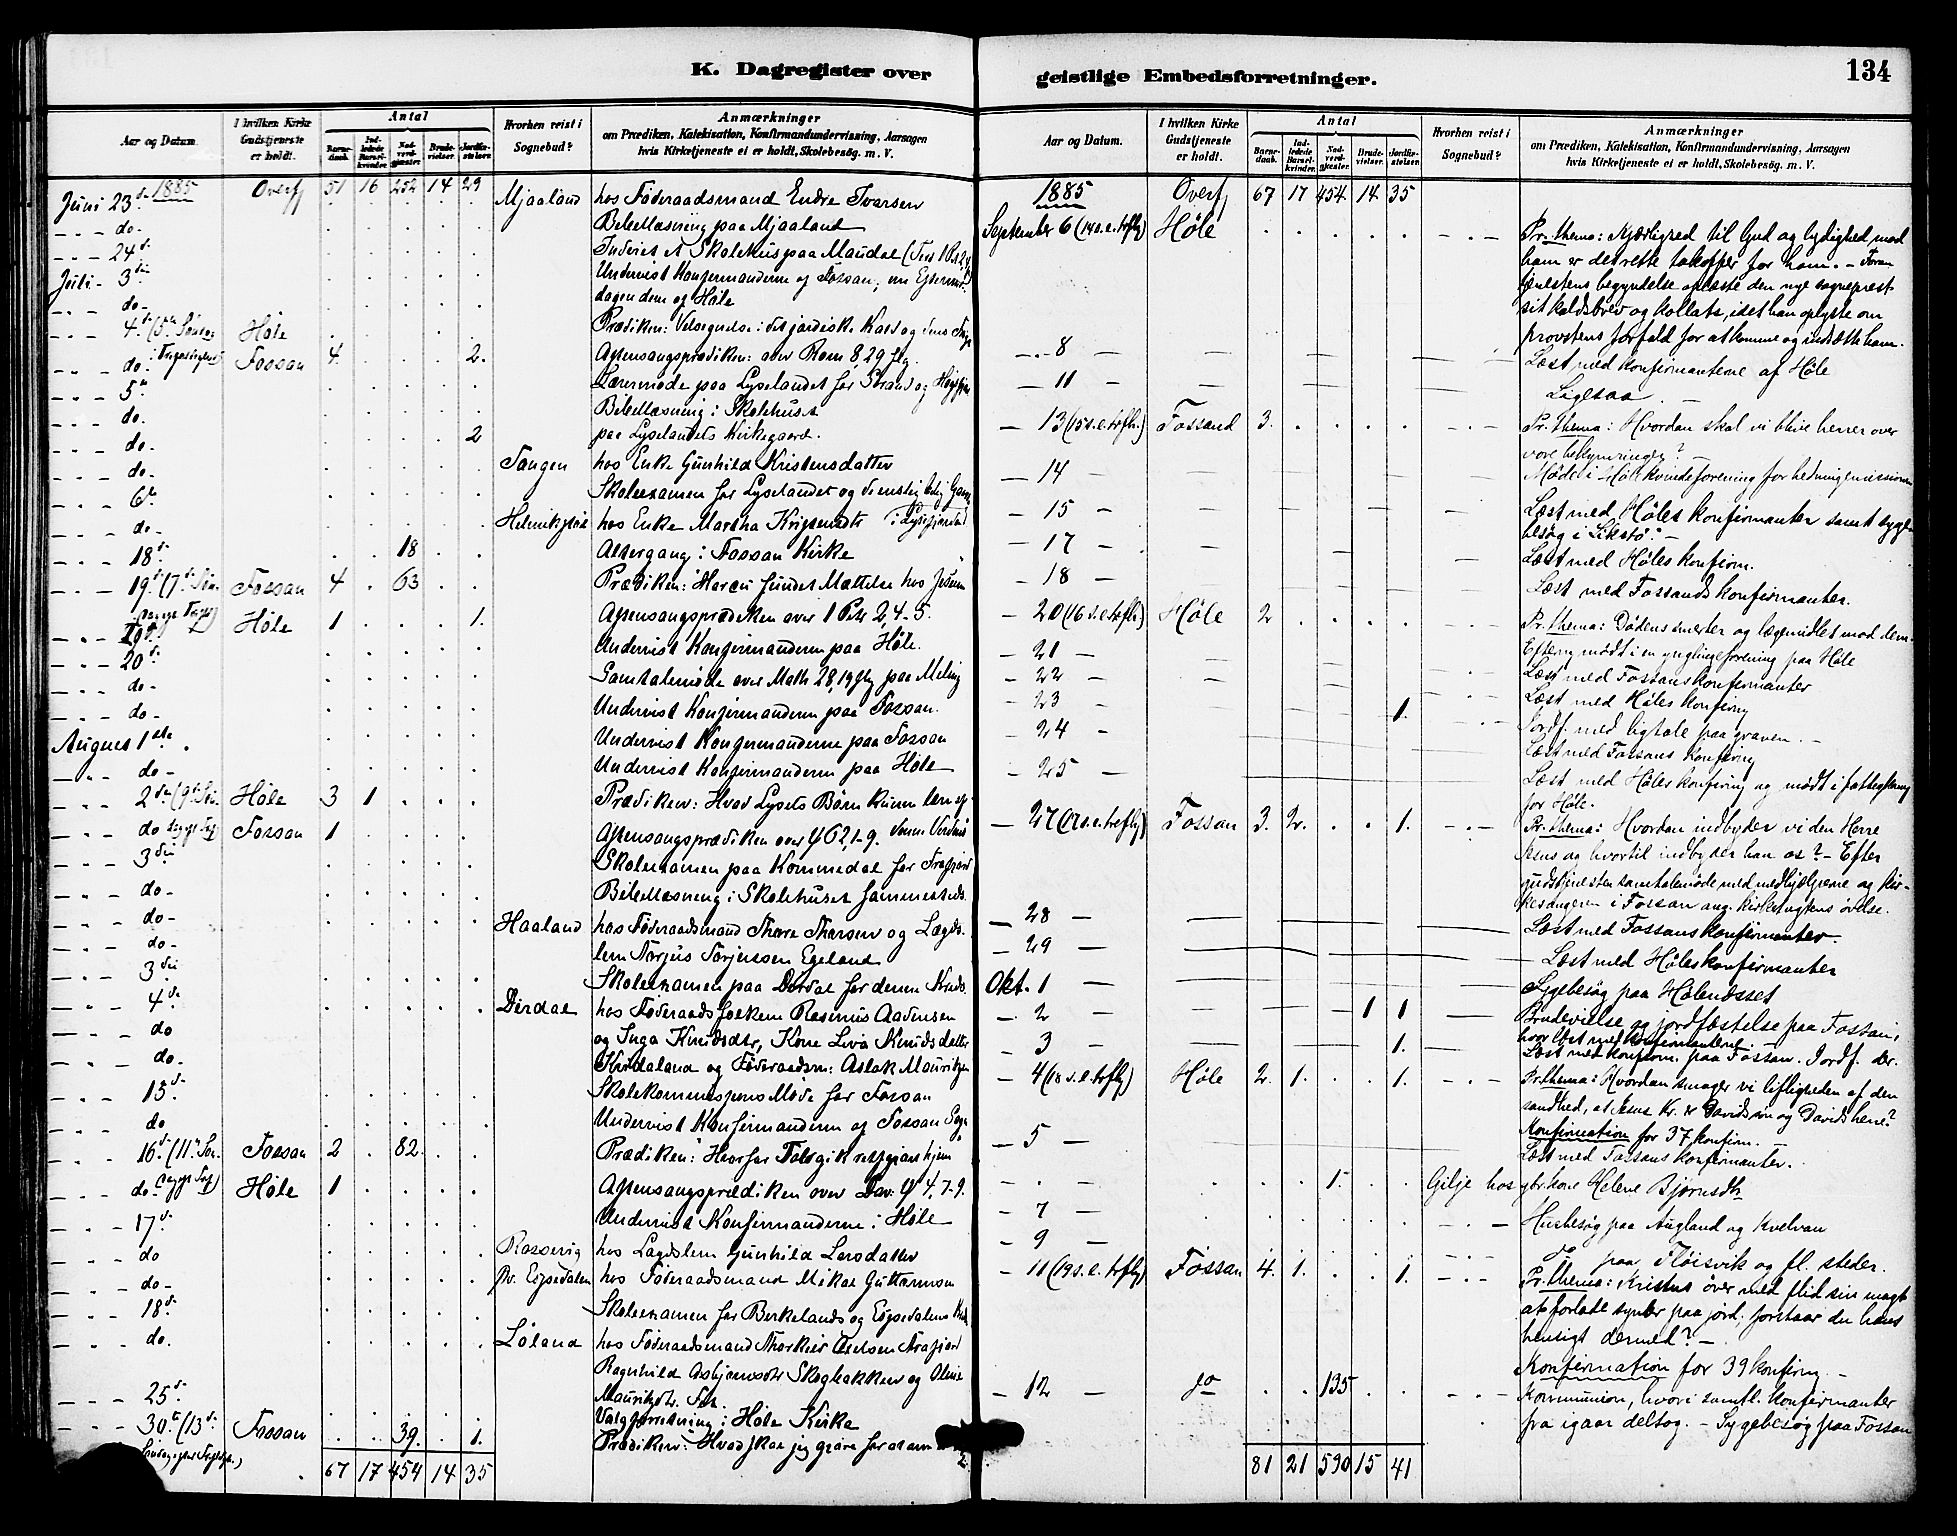 K. Dagregister over
geistlige Embedsforretninger.
134
Aar og Datum.
I hvilken Kirke Gudstjeneste er holdt.
Antal
Barnedaab.
Indledede Barselkvinder.
Nadverdgjæster.
Brudevielser.
Jordfæstelser.
Hvorhen reist i Sognebud?
Anmærkninger
om Prædiken, Katekisation, Konfirmandundervisning, Aarsagen
hvis Kirketjeneste ei er holdt, Skolebesøg. m. V.
1885 Overf 51 16 252 14 29
Juni 23d Mjaaland hos Føderaadsmand Endre Ivarsen
do. Bibellæsning paa Mjaaland
24d Skolehus paa Maudal
Juli 3die Undervist Konfirmanderne af Fossan, om Eftermid-
do. dagen dem af Høle
4d (5te Høle Prædiken: Velsignelse i det jordiske Kald og
do. Fossan 4 2. Aftensangsprædiken: over Rom 8,29 flg.
5te Lærermøde paa Lyselandet for Strand og
do. Bibellæsning i Skolehuset
do. 2 paa Lyselandets Kirkegaard.
do. Tangen hos Enke Gunhild Kristensdatter
do. Skoleexamen for Lyselandet og
6te Helmikstøl hos Enke Martha i Lysefjorden
18d 18 Altergang i Fossan Kirke
19d (7d Søn. Fossan 4 63 Prædiken: Mættelse hos Jesum
19d Høle 1 1. Aftensangsprædiken over 1 Pet. 2,4-5.
20d Undervist Konfirmanderne paa Høle.
do. Samtalemøde over Math 28,19 flg paa Meling
do. Undervist Konfirmanderne paa Fossan.
August 1ste Undervist Konfirmanderne paa Fossan
do. Undervist Konfirmanderne paa Høle
2den (9d Søn. Høle 3 1 Prædiken: Hvad Lysets Børn kunne lære af
do Fossan 1 Aftensangsprædiken over Ψ 62,1-9. denne Verdens
3die Skoleexamen paa Kommedal for Frafjord
do. Bibellæsning i Skolehuset sammesteds.
do. Haaland hos Føderaadsmand Thore Thorsen og Lægds-
do. lem Torjus Torjussen Egeland
3die Skoleexamen paa Dirdal for denne Kreds.
4d Dirdal hos Føderaadsfolkene Rasmus Aadnesen
do og Inga Knudsdtr, Kone Liva Knudsdatter
do. og Føderaadsm: Aslak Mauritzen
15d Skolekommissions Møde for Fossan
do Undervist Konfirmanderne af Fossan Sogn
16d (11te Søn. Fossan 2 82. Prædiken: Hvorfor
do. Høle 1 Aftensangsprædiken over Dav. Ψ 4,7-9.
17d Undervist Konfirmanderne i Høle
do Rossavig hos Lægdslem Gunhild Larsdatter
do. Espedalen hos Føderaadsmand Mikal Guttormsen
18d Skoleexamen for Birkelands og Espedalens
do. Løland hos Føderaadsmand Thorkier Frafjord
Ragnhild Asbjørnsdtr Skogbakken og Oline
Mauritzdtr
25d Valgforretning i Høle Kirke
30te (13d Fossan 39. 1. Prædiken: Hvad skal jeg gjøre for at
67 17 454 14 35
Aar og Datum.
I hvilken Kirke Gudstjeneste er holdt.
Antal
Barnedaab.
Indledede Barselkvinder.
Nadverdgjæster.
Brudevielser.
Jordfæstelser.
Hvorhen reist i Sognebud?
Anmærkninger
om Prædiken, Katekisation, Konfirmandundervisning, Aarsagen
hvis Kirketjeneste ei er holdt, Skolebesøg. m. V.
1885 Overf 67 17 454 14 35
September 6 (14 s. e. trflg) Høle Pr. thema: Kjærlighed til Gud og lydighed mod
ham er det rette takoffer for ham. - Foran
tjenestens begyndelse oplæste den nye sogneprest
sit kaldsbrev og kollats, idet han oplyste om
provstens forfald for at komme og indsætte ham.
8 Læst med konfirmanterne af Høle
11 Ligesaa.
13 (15 s. e. trflg.) Fossand 3. Pr. thema: Hvordan skal vi blive herrer over
vore bekymringer?
14 Møde i Høle kvindeforening for hedningemissionen
15 Læst med Høles konfirmanter samt syge-
besøg i Sikstø.
17 Læst med Høles konfirm.
18 Læst med Fossands konfirmanter.
20 (16 s. e. trflg) Høle 2 Pr. thema: Dødens smerter og lægemidlet mod dem.
Efterm. mødt i en ynglingeforening paa Høle
21 Læst med Fossans konfirmanter
22 Læst med Høles konfirm
23 1. Jordf. med ligtale paa graven.
24 Læst med Fossans konfirm
25 Læst med Høles konfirm og mødt i fattigkom
for Høle.
27 (17 s. e. trflg) Fossan 3. 2. 1. Pr. thema: Hvordan indbyder vi den Herre
Jesus og hvortil indbyder han os? - Efter
gudstjenesten samtalemøde med medhjælperne og kir-
kesangeren i Fossan ang. kirketugtens øvelse.
28 Læst med Fossans konfirmanter.
29 Læst med Høles konfirmanter
Okt. 1 Sygebesøg paa Hølenesset
2 1 1 Brudevielse og jordfæstelse paa Fossan,
hvor læst med konfirmanterne.
3 1. Læst med konfirm. paa Fossan. Jordf. der.
4 (18 s. e. trflg) Høle 2. 1. 1. Pr. thema: Hvordan smager vi lifligheden af den
sandhed, at Jesus Kr. er Davids søn og Davids herre?
Konfirmation for 37 konfirm.
5 Læst med Fossans konfirmanter.
1. Gilje hos gbr. kone Helene Bjørnsdtr
7 Husbesøg paa Augland og Kvelvan
9 paa Fløisvik og fl. steder.
11 (19 s. e. trflg) Fossan 4. 1. 1. Pr. thema: Kristus øver med flid sin magt
at forlate synder paa jord; forstaar du hans
hensigt dermed?
Konfirmation for 39 konfirm.
12 do 135 Kommunion, hvori samtl. konfirmanter
fra igaar deltog. - Sygebesøg paa Fossan
81 21 590 15 41